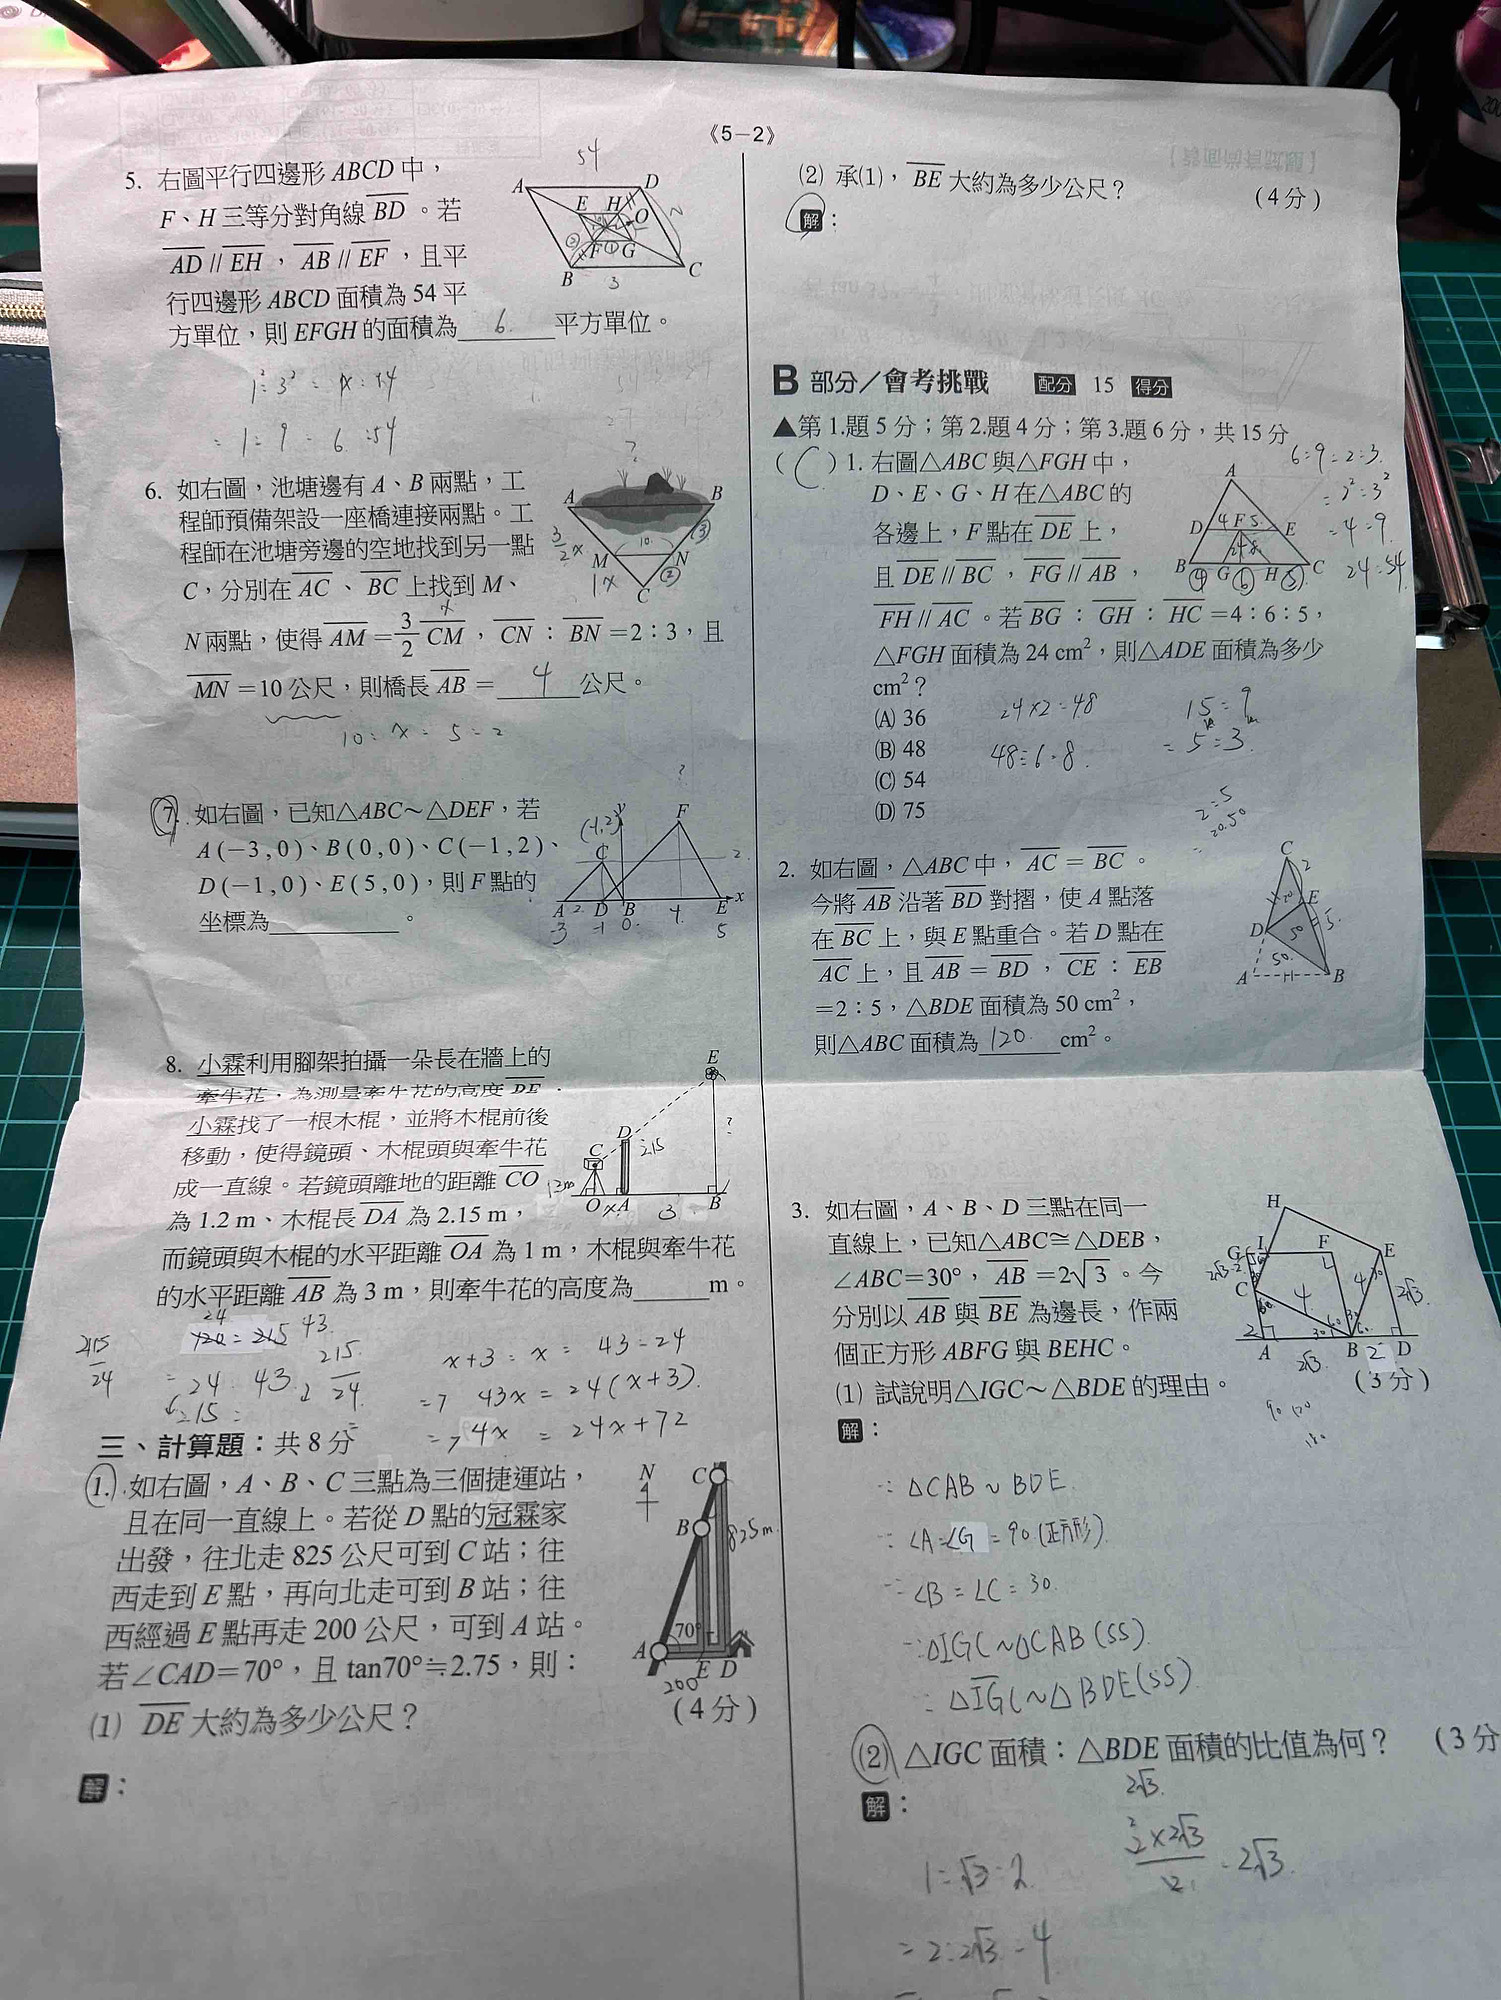 《5－2》
5. 右圖平行四邊形 ABCD 中，
F、H 三等分對角線 BD 。若
AD // EH ， AB // EF ，且平
行四邊形 ABCD 面積為 54 平
方單位，則 EFGH 的面積為 6. 平方單位。
54
A D E H O F G B C
3
1²:3² = x:54
= 1:9 = 6:54
6. 如右圖，池塘邊有 A、B 兩點，工
程師預備架設一座橋連接兩點。工
程師在池塘旁邊的空地找到另一點
C，分別在 AC 、 BC 上找到 M、
N 兩點，使得 AM = 3/2 CM ， CN : BN = 2：3，且
MN = 10 公尺，則橋長 AB = 4 公尺。
?
A B M N C
3/2 x 1x 10 ③ ②
10:x = 5:2
7. 如右圖，已知△ABC～△DEF，若
A (−3 , 0)、B (0 , 0)、C (−1 , 2)、
D (−1 , 0)、E (5 , 0)，則 F 點的
坐標為 。
(-1,2) y F C 2
A 2 D B E x
-3 -1 0. 4. 5
8. 小霖利用腳架拍攝一朵長在牆上的
牽牛花，為測量牽牛花的高度 BE，
小霖找了一根木棍，並將木棍前後
移動，使得鏡頭、木棍頭與牽牛花
成一直線。若鏡頭離地的距離 CO
為 1.2 m、木棍長 DA 為 2.15 m，
而鏡頭與木棍的水平距離 OA 為 1 m，木棍與牽牛花
的水平距離 AB 為 3 m，則牽牛花的高度為 m。
E D C O A B
?
3
24 43.
120 = 215
215/24
= 24 : 43.
215/24
x+3 : x = 43:24
=> 43x = 24(x+3).
=> 4x = 24x+72
三、計算題：共 8 分
1. 如右圖，A、B、C 三點為三個捷運站，
且在同一直線上。若從 D 點的冠霖家
出發，往北走 825 公尺可到 C 站；往
西走到 E 點，再向北走可到 B 站；往
西經過 E 點再走 200 公尺，可到 A 站。
若∠CAD＝70°，且 tan70°≒2.75，則：
N C B A E D
825m
70°
200
(1) DE 大約為多少公尺？ （4 分）
解：
(2) 承(1)， BE 大約為多少公尺？ （4 分）
解：
B 部分／會考挑戰 配分 15 得分
▲第 1.題 5 分；第 2.題 4 分；第 3.題 6 分，共 15 分
( C ) 1. 右圖△ABC 與△FGH 中，
D、E、G、H 在△ABC 的
各邊上，F 點在 DE 上，
且 DE // BC ， FG // AB ，
FH // AC 。若 BG : GH : HC = 4：6：5，
△FGH 面積為 24 cm²，則△ADE 面積為多少
cm²？
(A) 36
(B) 48
(C) 54
(D) 75
A
D 4 F 5. E
B ④ G ⑥ H ⑤ C
6:9 = 2:3.
= 2²:3²
= 4:9.
24:54.
24×2=48
48÷6=8.
15:9
= 5:3.
2:5
20.50
2. 如右圖，△ABC 中， AC = BC 。
今將 AB 沿著 BD 對摺，使 A 點落
在 BC 上，與 E 點重合。若 D 點在
AC 上，且 AB = BD ， CE : EB
＝2：5，△BDE 面積為 50 cm²，
則△ABC 面積為 120. cm²。
C 2 E 5. D 50 50. A B
3. 如右圖，A、B、D 三點在同一
直線上，已知△ABC≅△DEB，
∠ABC＝30°， AB =2√3 。今
分別以 AB 與 BE 為邊長，作兩
個正方形 ABFG 與 BEHC。
(1) 試說明△IGC～△BDE 的理由。 （3 分）
H G I F E C A B D
2√3-2 4 4 2√3. 2 2√3. 2
90 120
解：
∵ △CAB ~ BDE
∵ ∠A=∠G = 90 (正方形)
∵ ∠B = ∠C = 30.
∵ △IGC ~ △CAB (SS).
∴ △IGC ~ △BDE (SS).
(2) △IGC 面積：△BDE 面積的比值為何？ （3 分
解：
2√3.
2×2√3/2 = 2√3.
1:√3:2
= 2:2√3:4